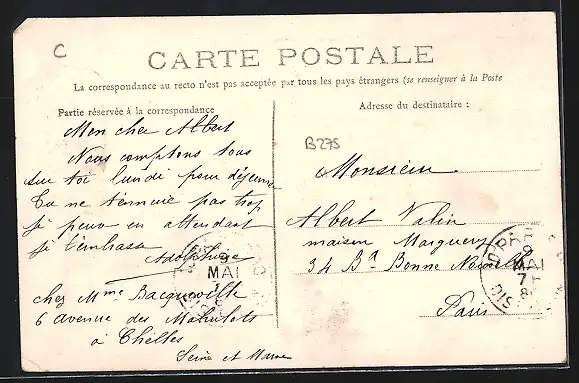 C
CARTE POSTALE
La correspondance au recto n'est pas acceptée par tous les pays étrangers (se renseigner à la Poste
Partie réservée à la correspondance
Mon cher Albert
Nous comptons tous
sur toi lundi pour déjeuner
Tu ne t'ennuie pas trop
je peux en attendant
je t'embrasse
Adolphine
chez Mme Bacqueville
6 avenue des
à Chelles
Seine et Marne
Adresse du destinataire :
B275
Monsieur
Albert Valin
maison Marguery
34 Bd Bonne Nouvelle
Paris
MAI
MAI
7